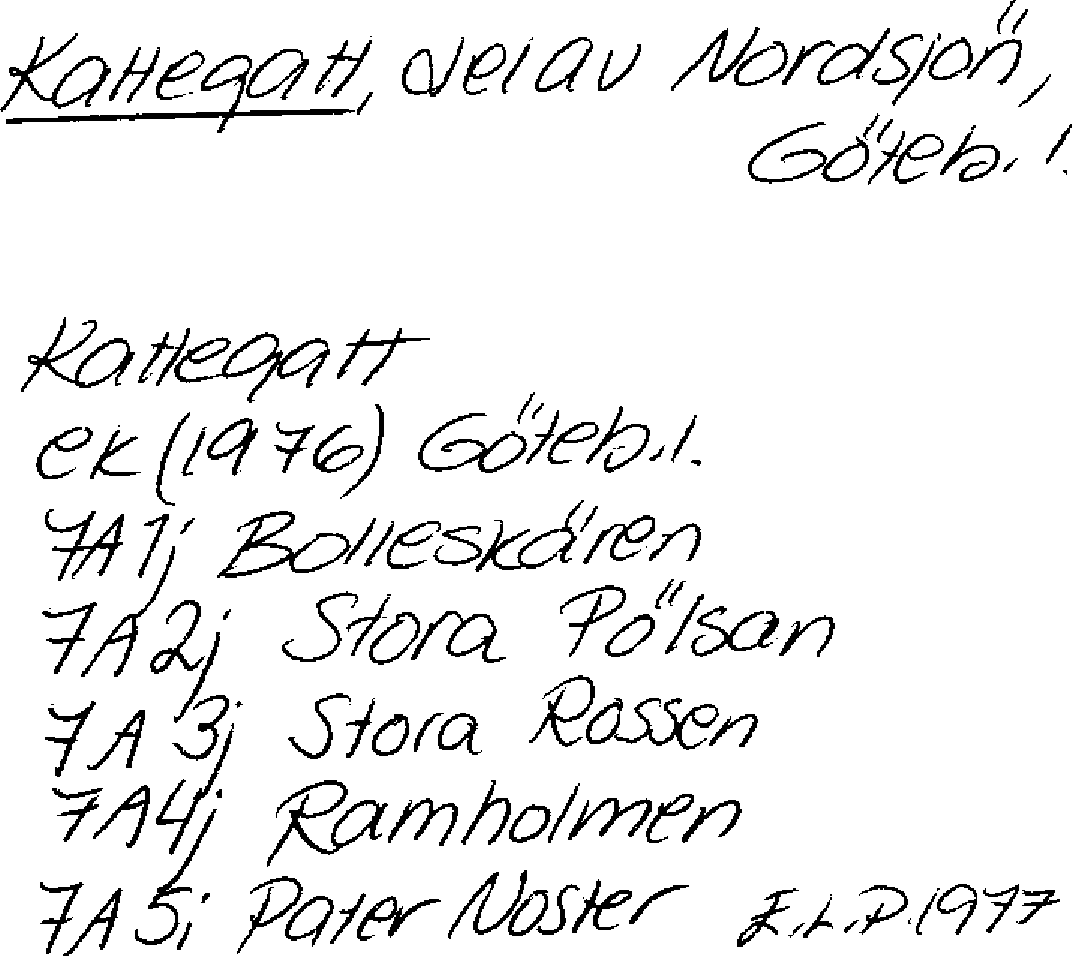 Kattegatt, del av Nordsjön,
Göteb. l.
Kattegatt
ek (1976) Göteb. l.
7A1j Bolleskären
7A2j Stora Pölsan
7A3j Stora Rossen
7A4j Ramholmen
7A5i Pater Noster E.L.P. 1977